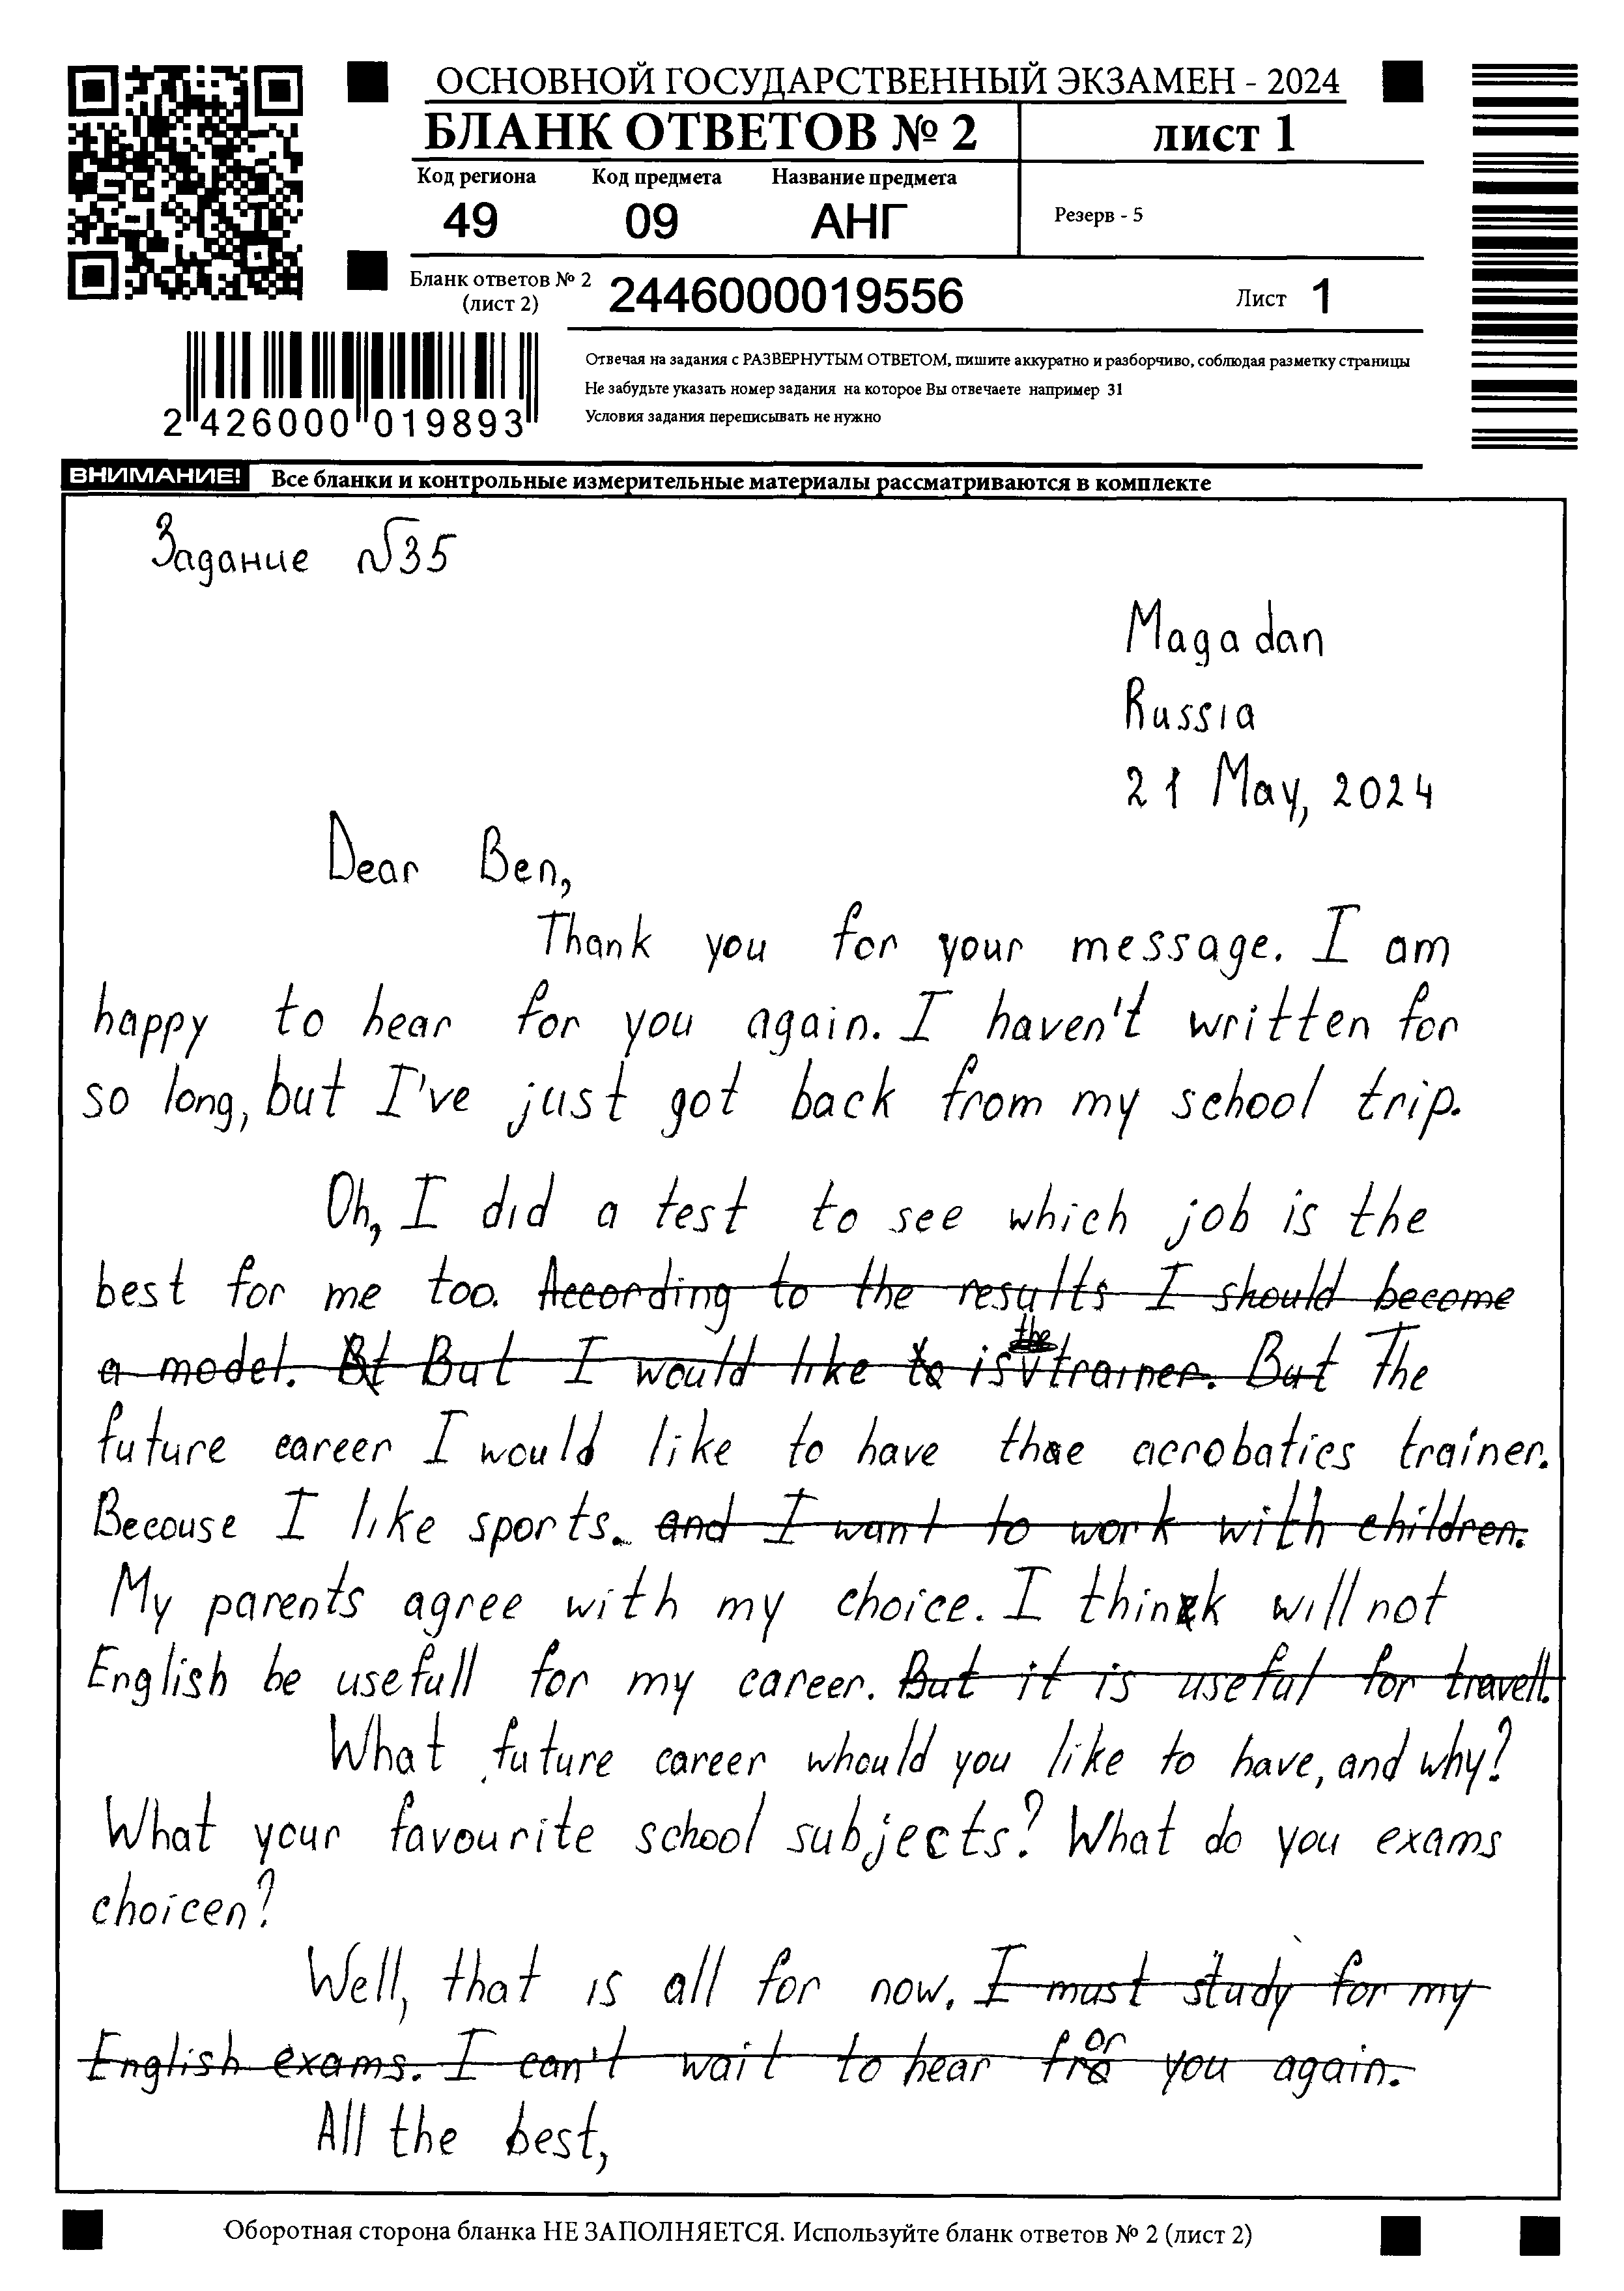 ОСНОВНОЙ ГОСУДАРСТВЕННЫЙ ЭКЗАМЕН - 2024
БЛАНК ОТВЕТОВ № 2 лист 1
Код региона Код предмета Название предмета
49 09 АНГ Резерв - 5
Бланк ответов № 2 (лист 2) 2446000019556 Лист 1
Отвечая на задания с РАЗВЕРНУТЫМ ОТВЕТОМ, пишите аккуратно и разборчиво, соблюдая разметку страницы
Не забудьте указать номер задания на которое Вы отвечаете например 31
Условия задания переписывать не нужно
2 426000 019893
ВНИМАНИЕ! Все бланки и контрольные измерительные материалы рассматриваются в комплекте
Задание №35
Magadan
Russia
21 May, 2024
Dear Ben,
Thank you for your message. I am
happy to hear for you again. I haven't written for
so long, but I've just got back from my school trip.
Oh, I did a test to see which job is the
best for me too. According to the results I should become
a model. Bt But I would like to is the trainer. But The
future career I would like to have thae acrobatics trainer.
Becouse I like sports. and I want to work with children.
My parents agree with my choice. I think will not
English be usefull for my career. But it is useful for travell.
What future career whould you like to have, and why?
What your favourite school subjects? What do you exams
choicen?
Well, that is all for now. I must study for my
English exams. I can't wait to hear for you again.
All the best,
Оборотная сторона бланка НЕ ЗАПОЛНЯЕТСЯ. Используйте бланк ответов № 2 (лист 2)